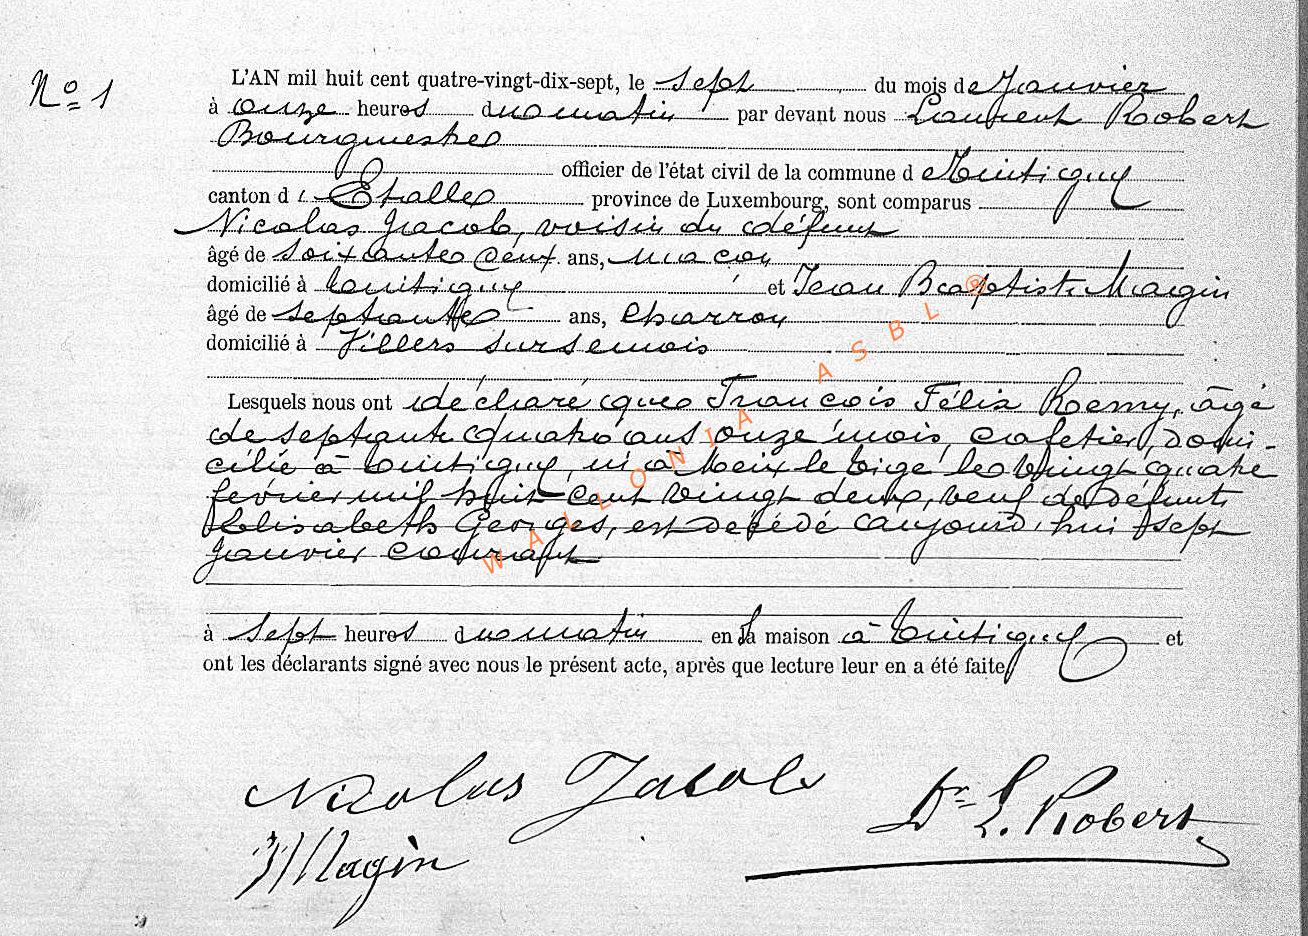 No 1
L'AN mil huit cent quatre-vingt-dix-sept, le sept du mois de Janvier
à onze heures du matin par devant nous Laurent Robert
Bourgmestre
officier de l'état civil de la commune de Tintigny
canton d' Etalle province de Luxembourg, sont comparus
Nicolas Jacob, voisin du défunt
âgé de soixante deux ans, maçon
domicilié à Tintigny et Jean Baptiste Magin
âgé de septante ans, charron
domicilié à Villers sur Semois
Lesquels nous ont déclaré que François Félix Remy, âgé
de septante quatre ans onze mois, cafetier, domi-
cilié à Tintigny, né à Meix le Tige le vingt quatre
février mil huit cent vingt deux, veuf de défunte
Elisabeth Georges, est décédé aujourd'hui sept
janvier courant
à sept heures du matin en sa maison à Tintigny et
ont les déclarants signé avec nous le présent acte, après que lecture leur en a été faite
Nicolas Jacob
Dr L. Robert
JJ Magin
WALLONIA ASBL ®